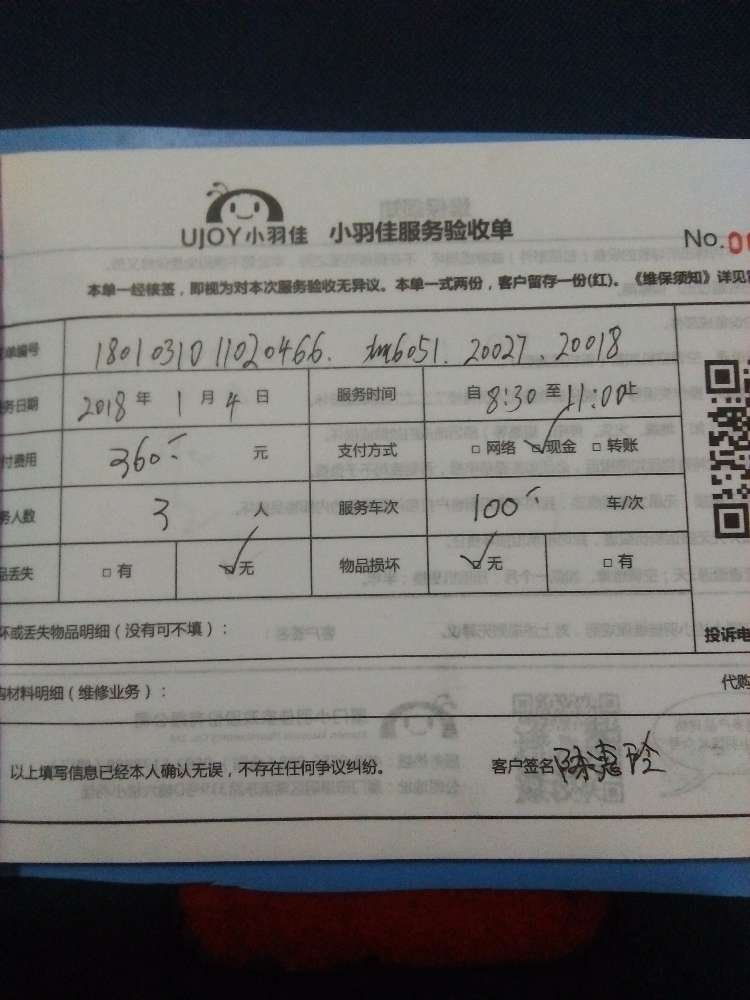 UJOY小羽佳 小羽佳服务验收单
No.0
本单一经核签，即视为对本次服务验收无异议。本单一式两份，客户留存一份(红)。《维保须知》详见
单编号 1801031011020466. 6051. 20027. 20018
务日期 2018 年 1 月 4 日 服务时间 自 8:30 至 11:00 止
付费用 360 元 支付方式 □ 网络 ☑ 现金 □ 转账
务人数 3 人 服务车次 100 车/次
品丢失 □ 有 ☑ 无 物品损坏 ☑ 无 □ 有
坏或丢失物品明细（没有可不填）：
投诉电
购材料明细（维修业务）：
代购
以上填写信息已经本人确认无误，不存在任何争议纠纷。 客户签名